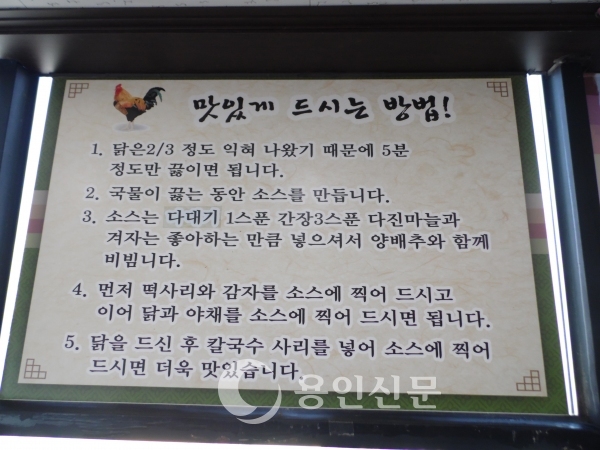 맛있게 드시는 방법!
1. 닭은2/3 정도 익혀 나왔기 때문에 5분
정도만 끓이면 됩니다.
2. 국물이 끓는 동안 소스를 만듭니다.
3. 소스는 다대기 1스푼 간장3스푼 다진마늘과
겨자는 좋아하는 만큼 넣으셔서 양배추와 함께
비빕니다.
4. 먼저 떡사리와 감자를 소스에 찍어 드시고
이어 닭과 야채를 소스에 찍어 드시면 됩니다.
5. 닭을 드신 후 칼국수 사리를 넣어 소스에 찍어
드시면 더욱 맛있습니다.
용인신문